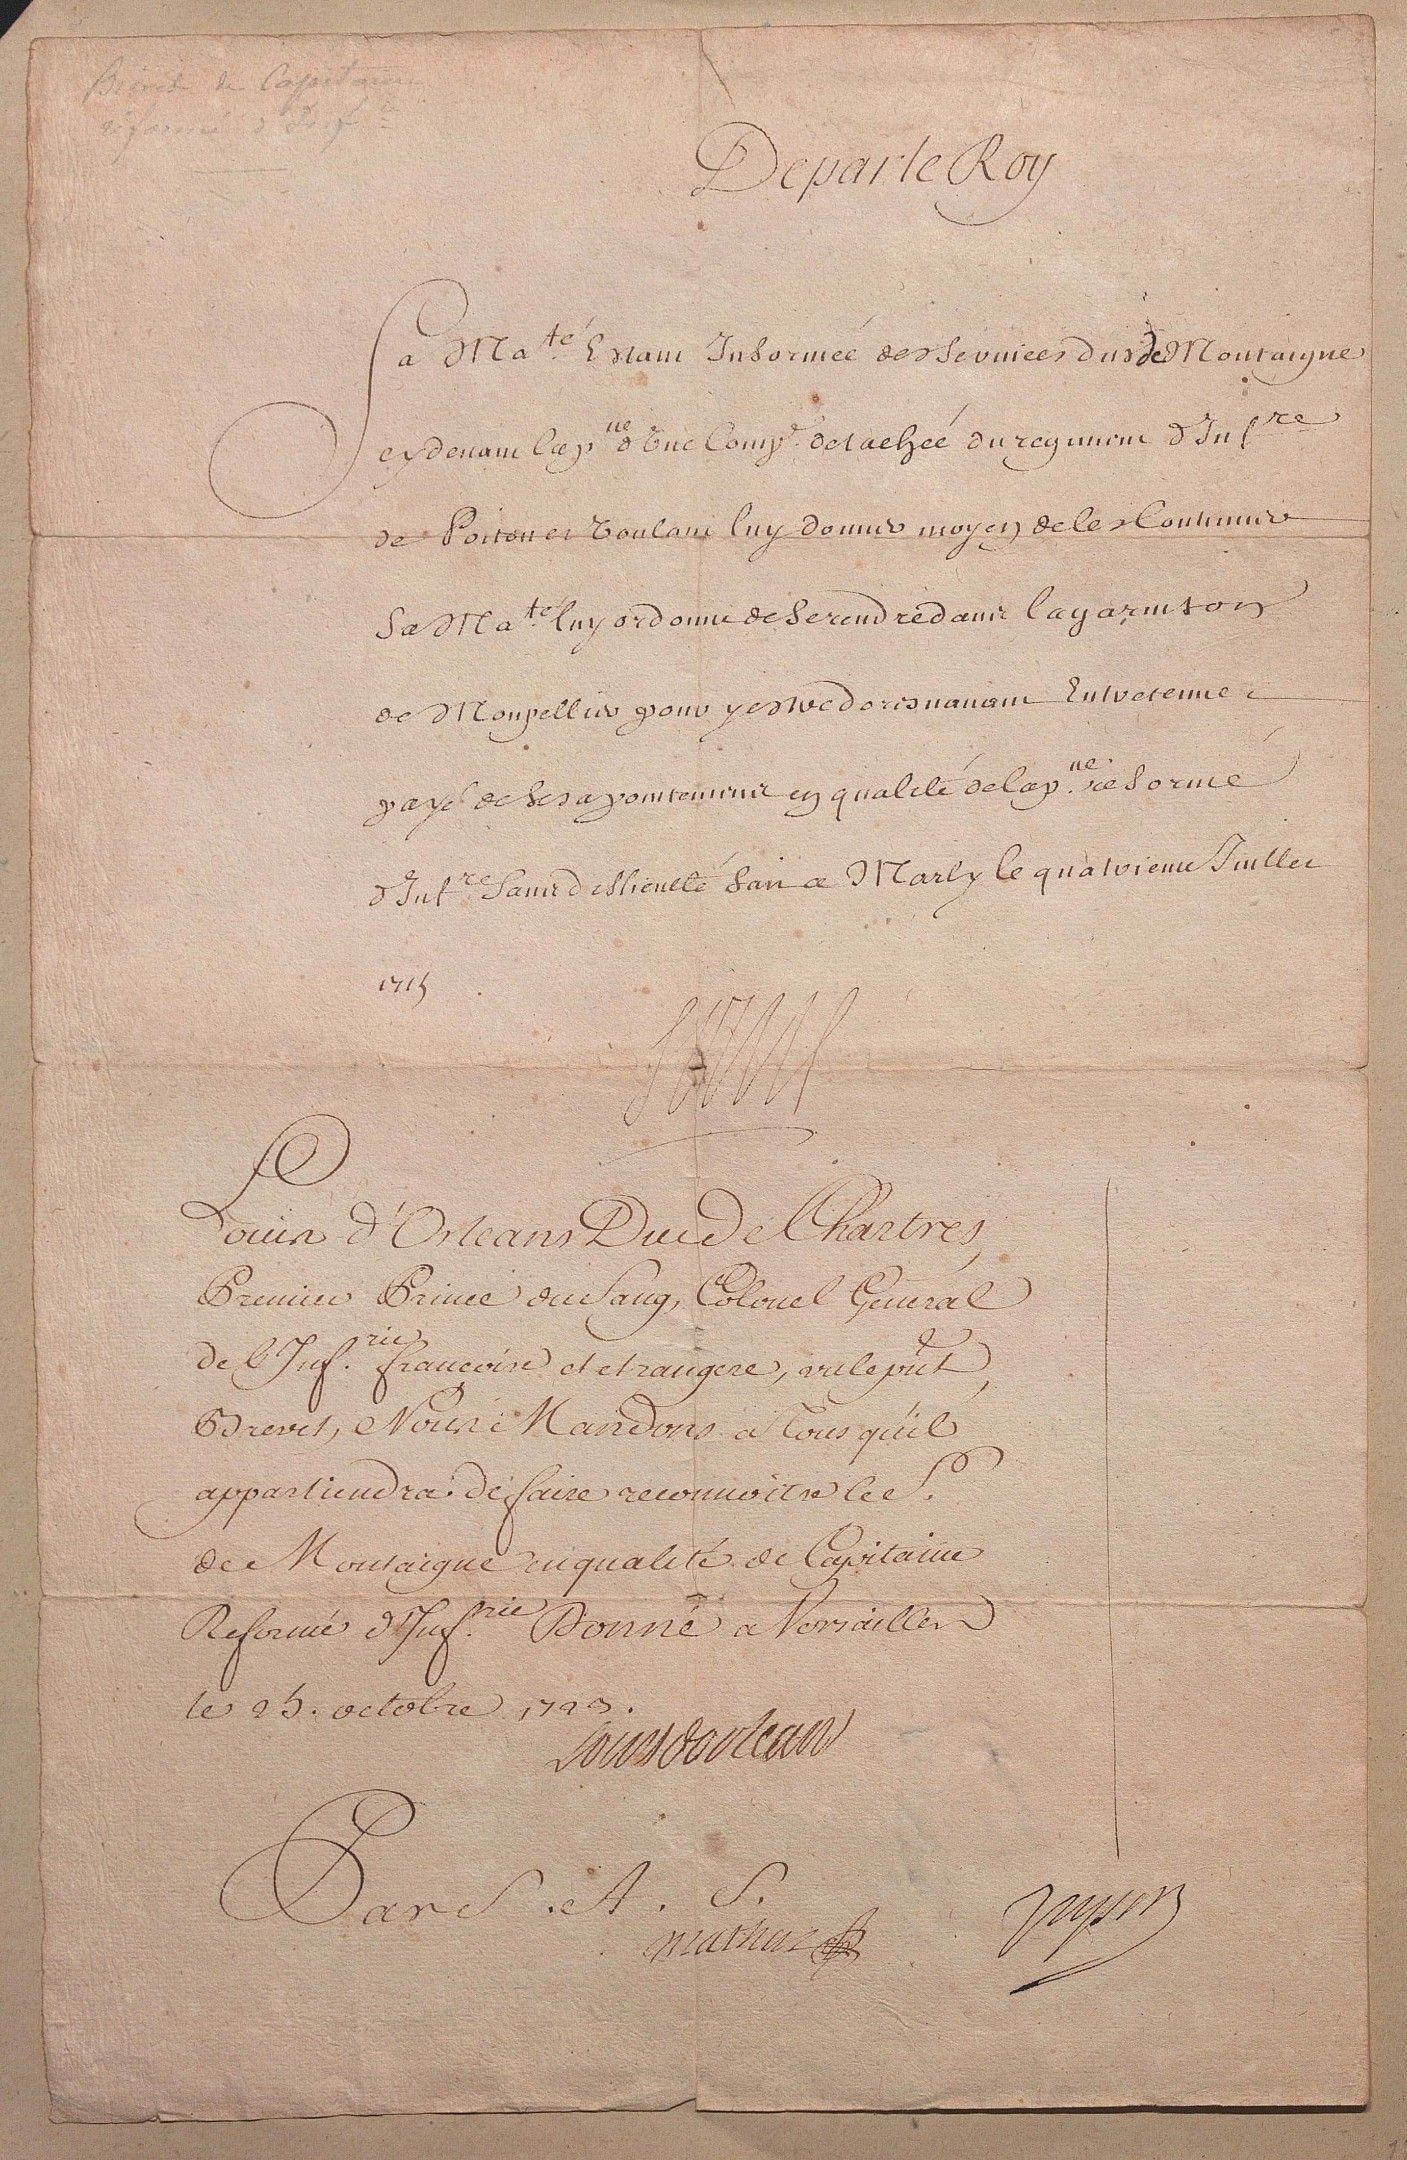 Brevet de Capitaine
réformé d'Inf.rie
De par le Roy
Sa Ma.té Estant Informée des services du S de Montaigne
cydevant Cap.ne d'une Comp.e detachée du regiment d'Inf.re
de Poitou et voulant luy donner moyen de les Continuer
Sa Ma.té luy ordonne de se rendre dans la garnison
de Monpellier pour y estre doresnavant Entretenu et
payé de ses apointemens en qualité de Cap.ne reformé
d'Inf.re Sans difficulté fait a Marly le quatrieme Juillet
1715
Louis
Louis d'Orleans Duc De Chartres,
Premier Prince du Sang, Colonel General
de l'Inf.rie francoise et etrangere, vu le pnt
Brevet, Nous Mandons a Tous qu'il
appartiendra de faire reconnoitre le S.
de Montaigne en qualité de Capitaine
Reformé d'Inf.rie Donné a Versailles
le 25. octobre 1723.
Louis dorleans
Par S. A. S.